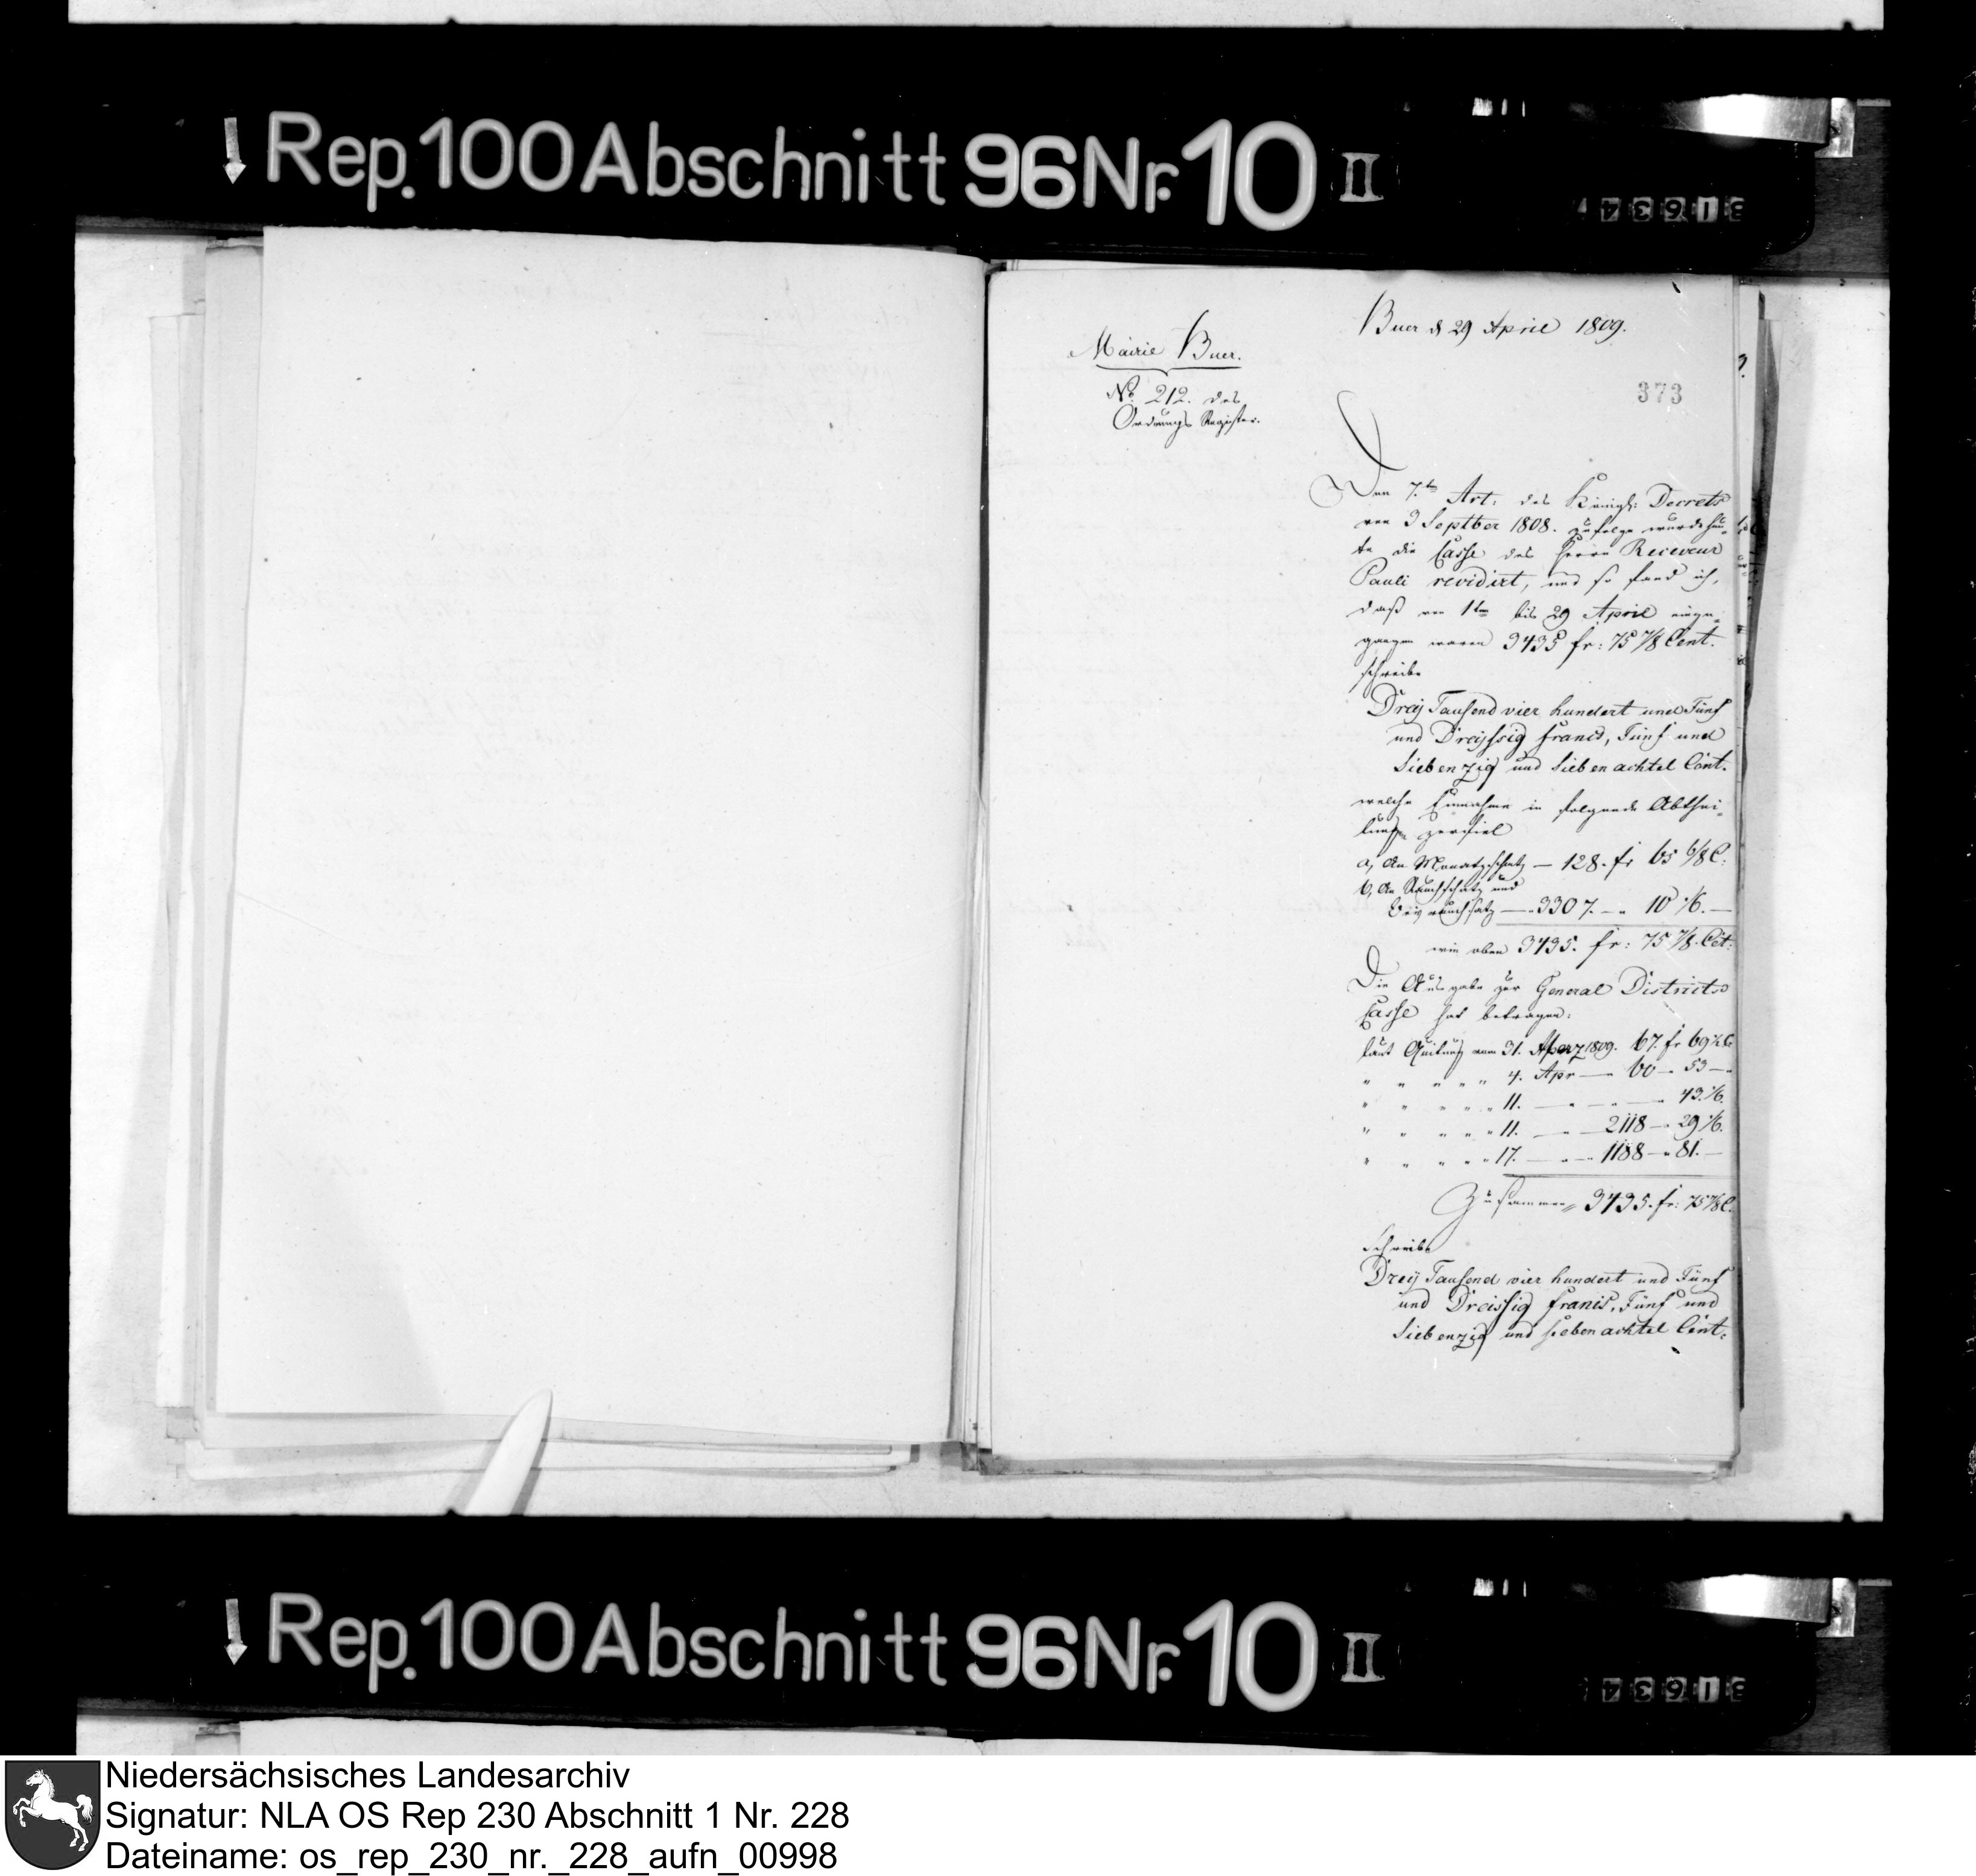 Rep. 100 Abschnitt 96 Nr. 10 II
31634
Buer d 29 April 1809.
Mairie Buer.
No. 212. des
Ordnungs Register.
373
Den 7.ten Art: des Königl: Decrets
von 3 Septber 1808. zufolge wurde heu-
te die Casse des Herrn Receveur
Pauli revidirt, und so fand ich,
daß von 1ten bis 29 April einge-
gangen waren 3435 fr: 75 7/8 Cent.
schreibe
Drey Tausend vier hundert und Fünf
und Dreyssig francs, Fünf und
Siebenzig und Sieben achtel Cent.
welche Einnahme in folgende Abthei-
lungen zerfiel
a, An Monatschatz — 128. fr 65 6/8 C.
b, An Rauchschatz und
— 3307. — 10 1/8. —
wie oben 3435. fr: 75 7/8. Cet:
Die Ausgabe zur General Districts
Casse hat betragen:
laut Quitung vom 31. Merz 1809. 67. fr 69 C
" " " " " 4. Apr — " 60 — 53 — "
" " " " " 11. — " — " — " 43.
" " " " " 11. — " — 2118 — 29
" " " " " 17. — " — 1188 — 81. —
Zusammen 3435. fr: 75 7/8 C.
Schreibe
Drey Tausend vier hundert und Fünf
und Dreissig francs, Fünf und
Siebenzig und sieben achtel Cent.
Rep. 100 Abschnitt 96 Nr. 10 II
31634
Niedersächsisches Landesarchiv
Signatur: NLA OS Rep 230 Abschnitt 1 Nr. 228
Dateiname: os_rep_230_nr._228_aufn_00998